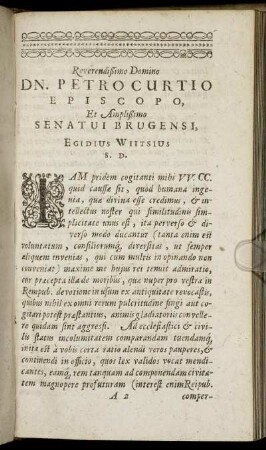 Reverendissimo Domino
DN. PETRO CURTIO
EPISCOPO,
Et Amplissimo
SENATUI BRUGENSI,
EGIDIUS WIITSIUS
S. D.
IAM pridem cogitanti mihi VV. CC.
quid causæ sit, quòd humana inge-
nia, quæ divina esse credimus, & in-
tellectus noster qui similitudinis sim-
plicitate unus est, ita perversè & di-
verso modo ducantur (tanta enim est
voluntatum, consiliorumq́; diversitas, ut semper
aliquem invenias, qui cum multis in opinando non
conveniat) maximè me hujus rei tenuit admiratio,
cur præcepta illa de moribus, quæ nuper pro vestra in
Rempub. devotione in usum ex antiquitate revocastis,
quibus nihil ex omni rerum pulcritudine fingi aut co-
gitari potest præstantius, animis gladiatoriis convelle-
re quidam sint aggressi. Ad ecclesiastici & civi-
lis status incolumitatem comparandam tuendamq́;
inita est à vobis certa ratio alendi veros pauperes, &
continendi in officio, quos lex validos vocat mendi-
cantes, eamq́; rem tanquam ad componendam civita-
tem magnopere profuturam (interest enim Reipub.
A 2 compo-